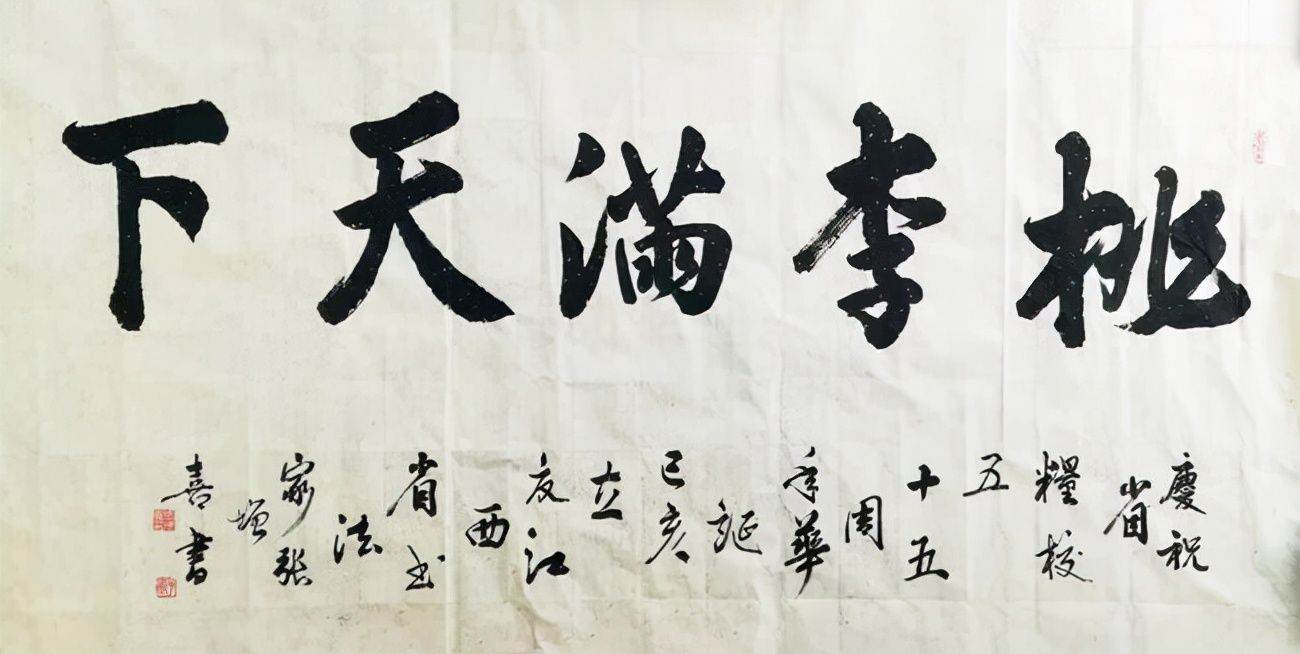 桃李滿天下
慶祝
省
糧校
五
十五
周
年華
誕
己亥
立
夏江
西
省书
法
家張
增
喜書